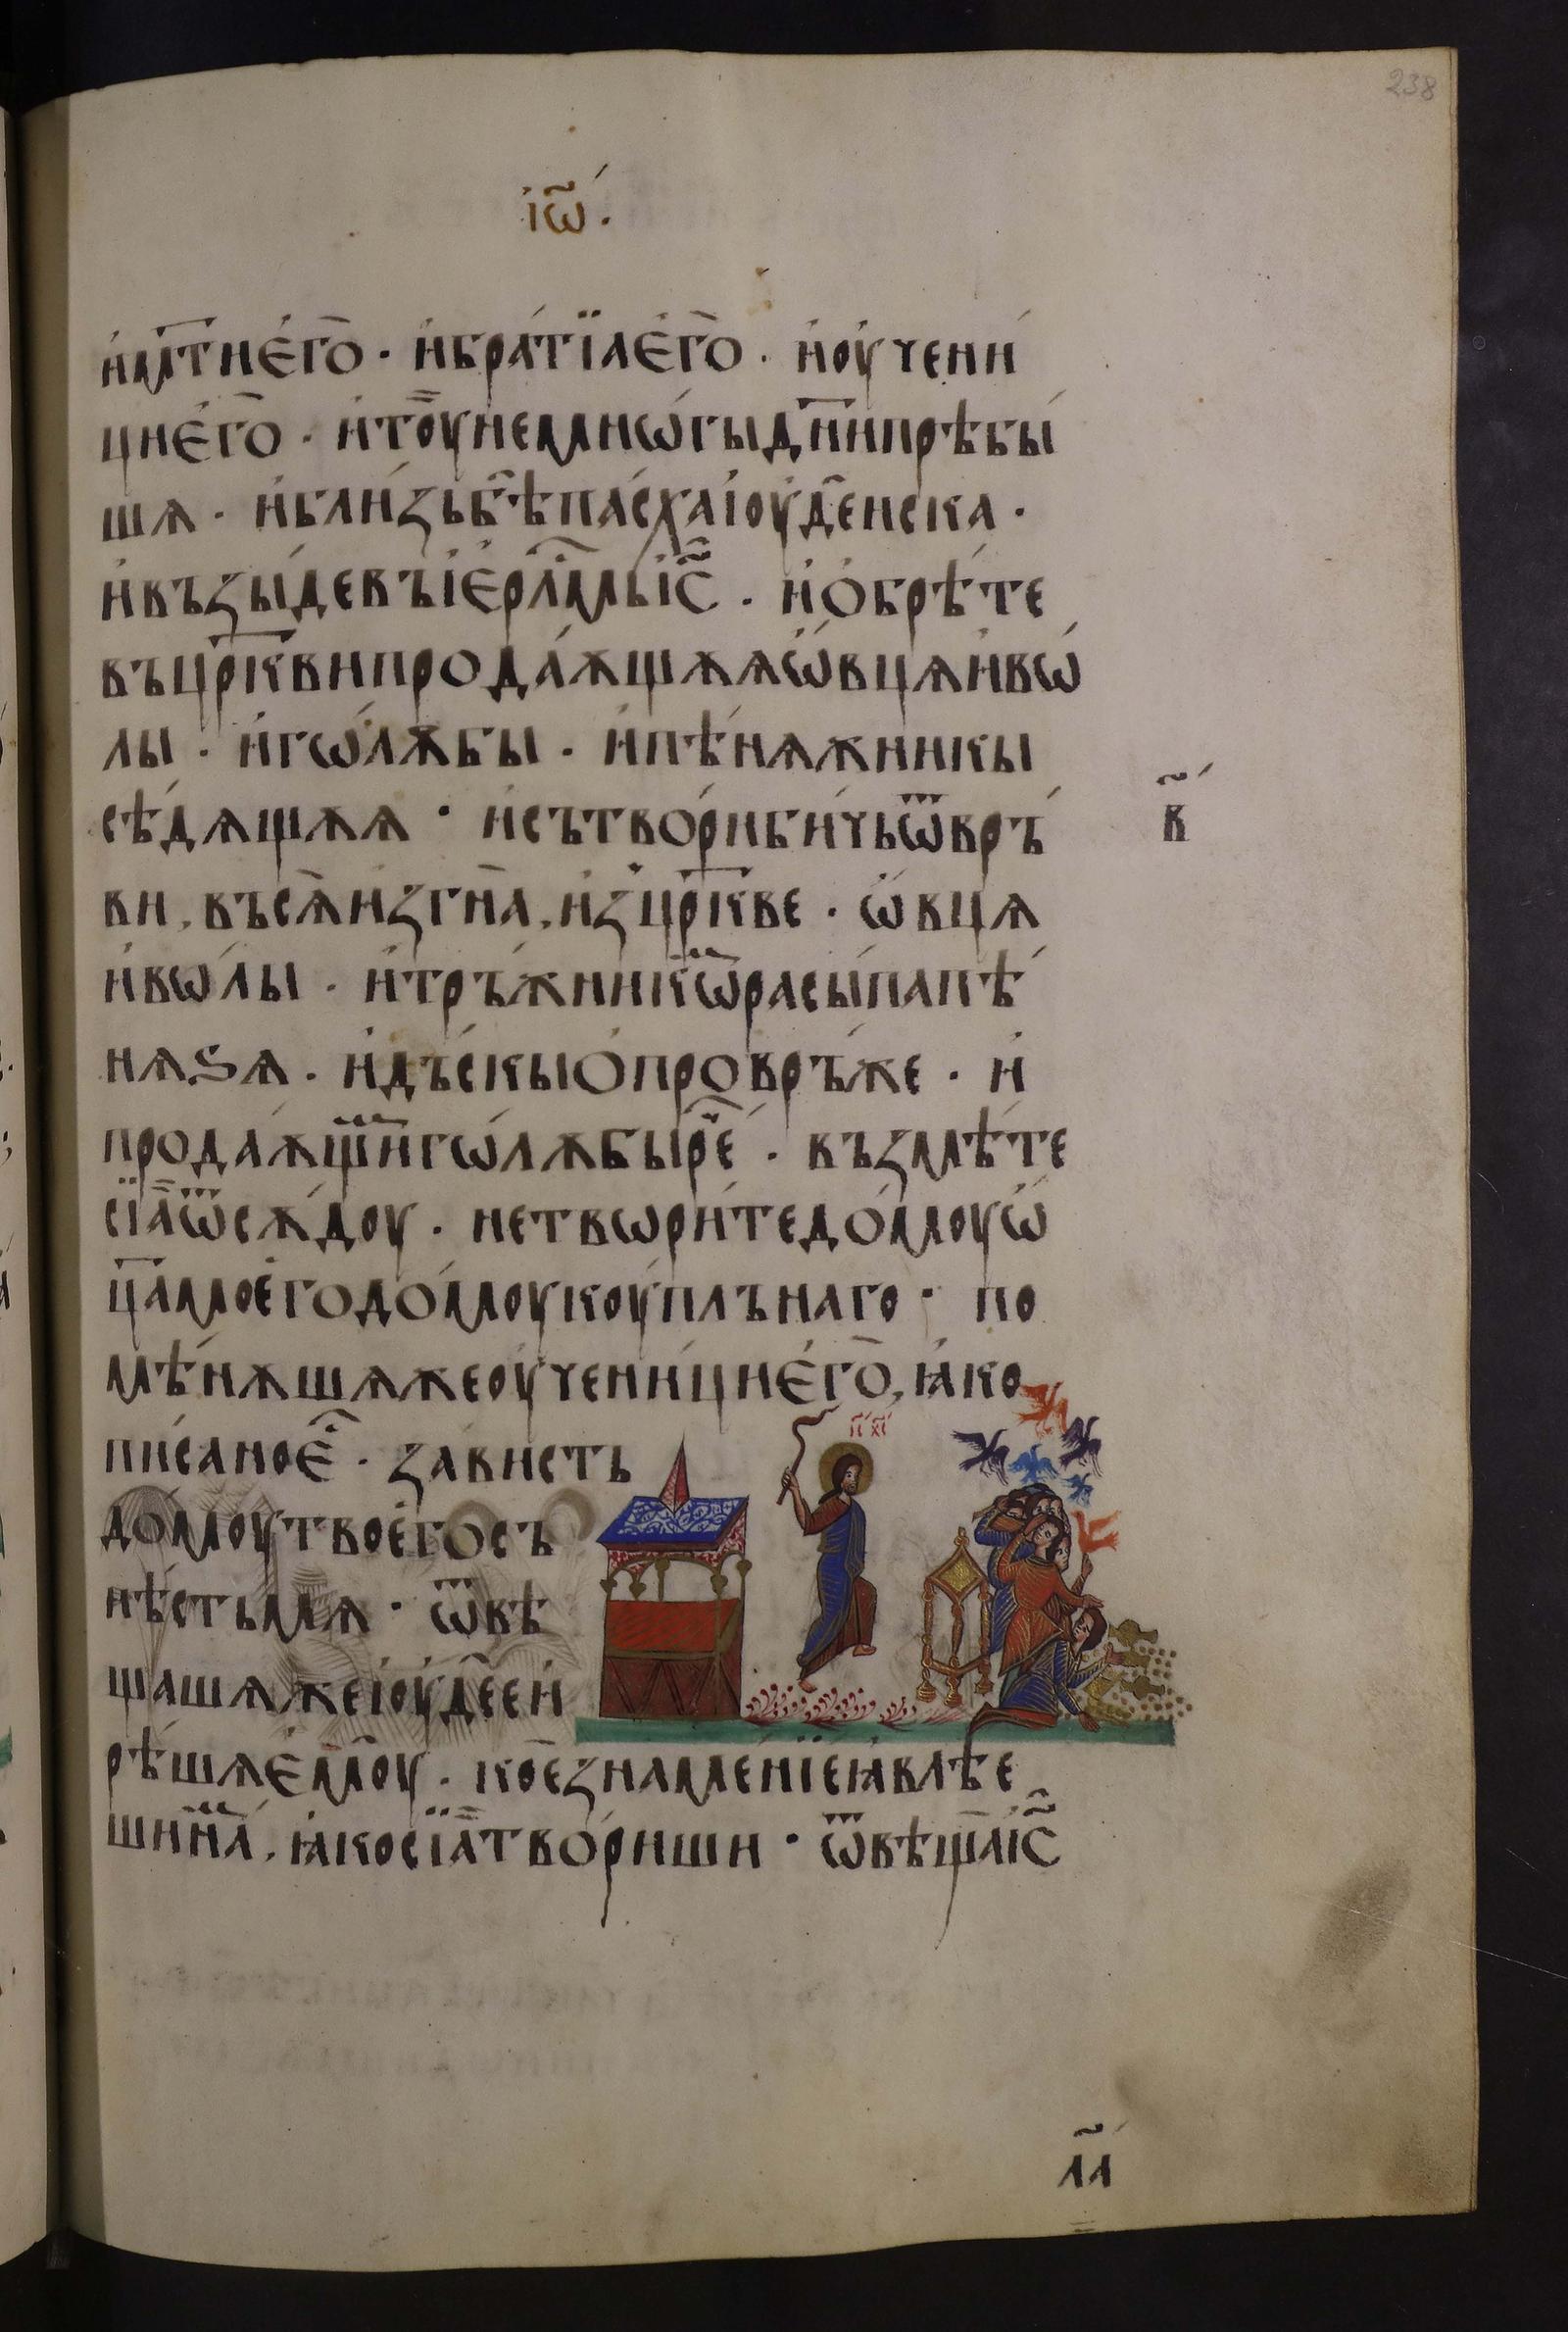 238
і҆ѡ҃.
и҆мт҃ие҆го̄ · и҆бра́тїа е҆го̄ · и҆оу҆чени́
цие҆го̄ · и҆то̄у немнѡ́гыдн҃ипрѣбы́
шѧ · и҆бли́зь б̑ѣ па́сха і҆оуд̑енска ·
и҆възы́де въ і҆ерл҃мь і҆с҃ · и҆ѡбрѣ́те
въцр҃кви прода́ѫщѫѧ ѡ҆вцѧ и҆вѡ
лы · и҆гѡ́лѫбы · и҆пѣ́нѧжникы
сѣ́дѧщѫѧ · и҆сътво́ри би́чь ѿ връ́
ви, въсѧ̑ и҆згн̑а, и҆з цр҃кве · ѡ҆вцѧ
и҆вѡ́лы · и҆тръ́жникѡ̑ расы́па пѣ́
нѧѕѧ · и҆дъ́скы ѻпровръ́же · и҆
прода́ѫщїи гѡ́лѫбы реч̑е · възмѣ́те
сїа̄ ѿсѫ́доу · нетвори́те до́моу ѡ҆
ц҃а мое҆го до́моу коу́плънаго · по
мѣ́нѫшѧже оу҆чени́ци е҆го̄, ꙗ҆ко
пи́сано е҆с̑ · за́висть
до́моу твое҆го съ
нѣ́стьмѧ · ѿвѣ
щашѧже і҆оуд̑ее и҆
рѣ́шѧ е҆моу · ко̑е зна́менїе ꙗ҆влѣ́е
шин̑а, ꙗ҆косїа̄ тво́риши · ѿвѣща і҆с҃
в҃
і҆с҃ х҃с
л҃а